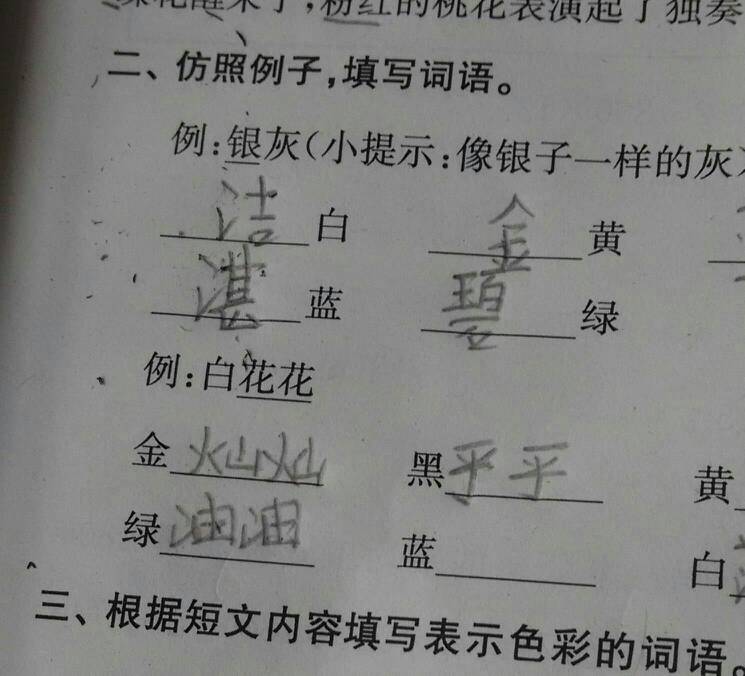 绿花醒来了，粉红的桃花表演起了独奏
二、仿照例子，填写词语。
例：银灰（小提示：像银子一样的灰）
洁白 金黄
湛蓝 碧绿
例：白花花
金灿灿 黑平平 黄
绿油油 蓝 白
三、根据短文内容填写表示色彩的词语。